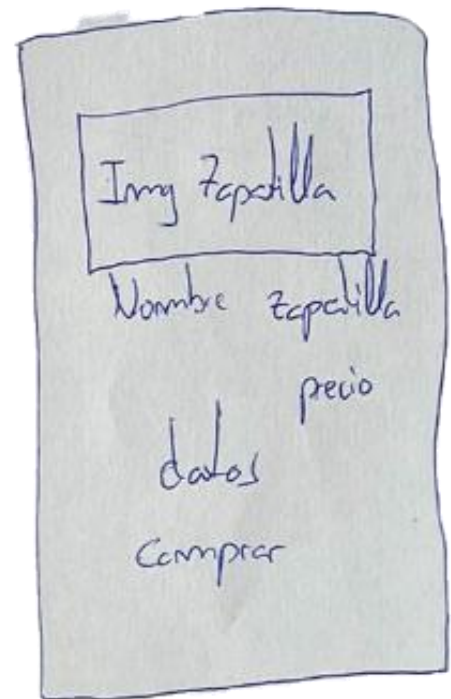 Img Zapatilla
Nombre zapatilla
precio
datos
Comprar